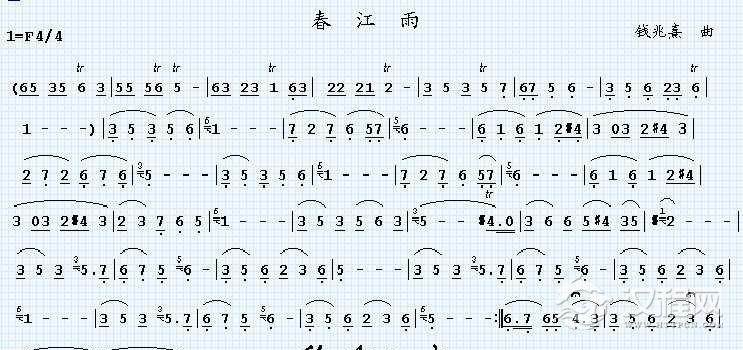 春 江 雨
1=F4/4
钱兆熹 曲
(65 35 6 3|55 56 5 -|63 23 1 63| 22 21 2 -|3 5 3 5 7|67 5 6 -|3 5 6 23 6|
1 - - -)|3 5 3 5 6|1- - -|7 2 7 6 57|6- - -|6 1 6 1 2#4|3 03 2#4 3|
2 7 2 6 7 6|5- - -|3 5 3 5 6|1- - -|7 2 7 6 57|6- - -|6 1 6 1 2#4|
3 03 2#4 3|2 3 7 6 5|1- - -|3 5 3 5 6 3|5- - #4.0|3 6 6 5#4 35|#2 - - -|
3 5 3 5.7|6 7 5 6 -|3 5 6 2 3 6|5 - - -|3 5 3 5.7|6 7 5 6 -|3 5 6 2 3 6|
1 - - -|3 5 3 5.7|6 7 5 6 -|3 5 6 2 3 6|5 - - -:‖6.7 65 4.3|3 5 6 2 3 6|